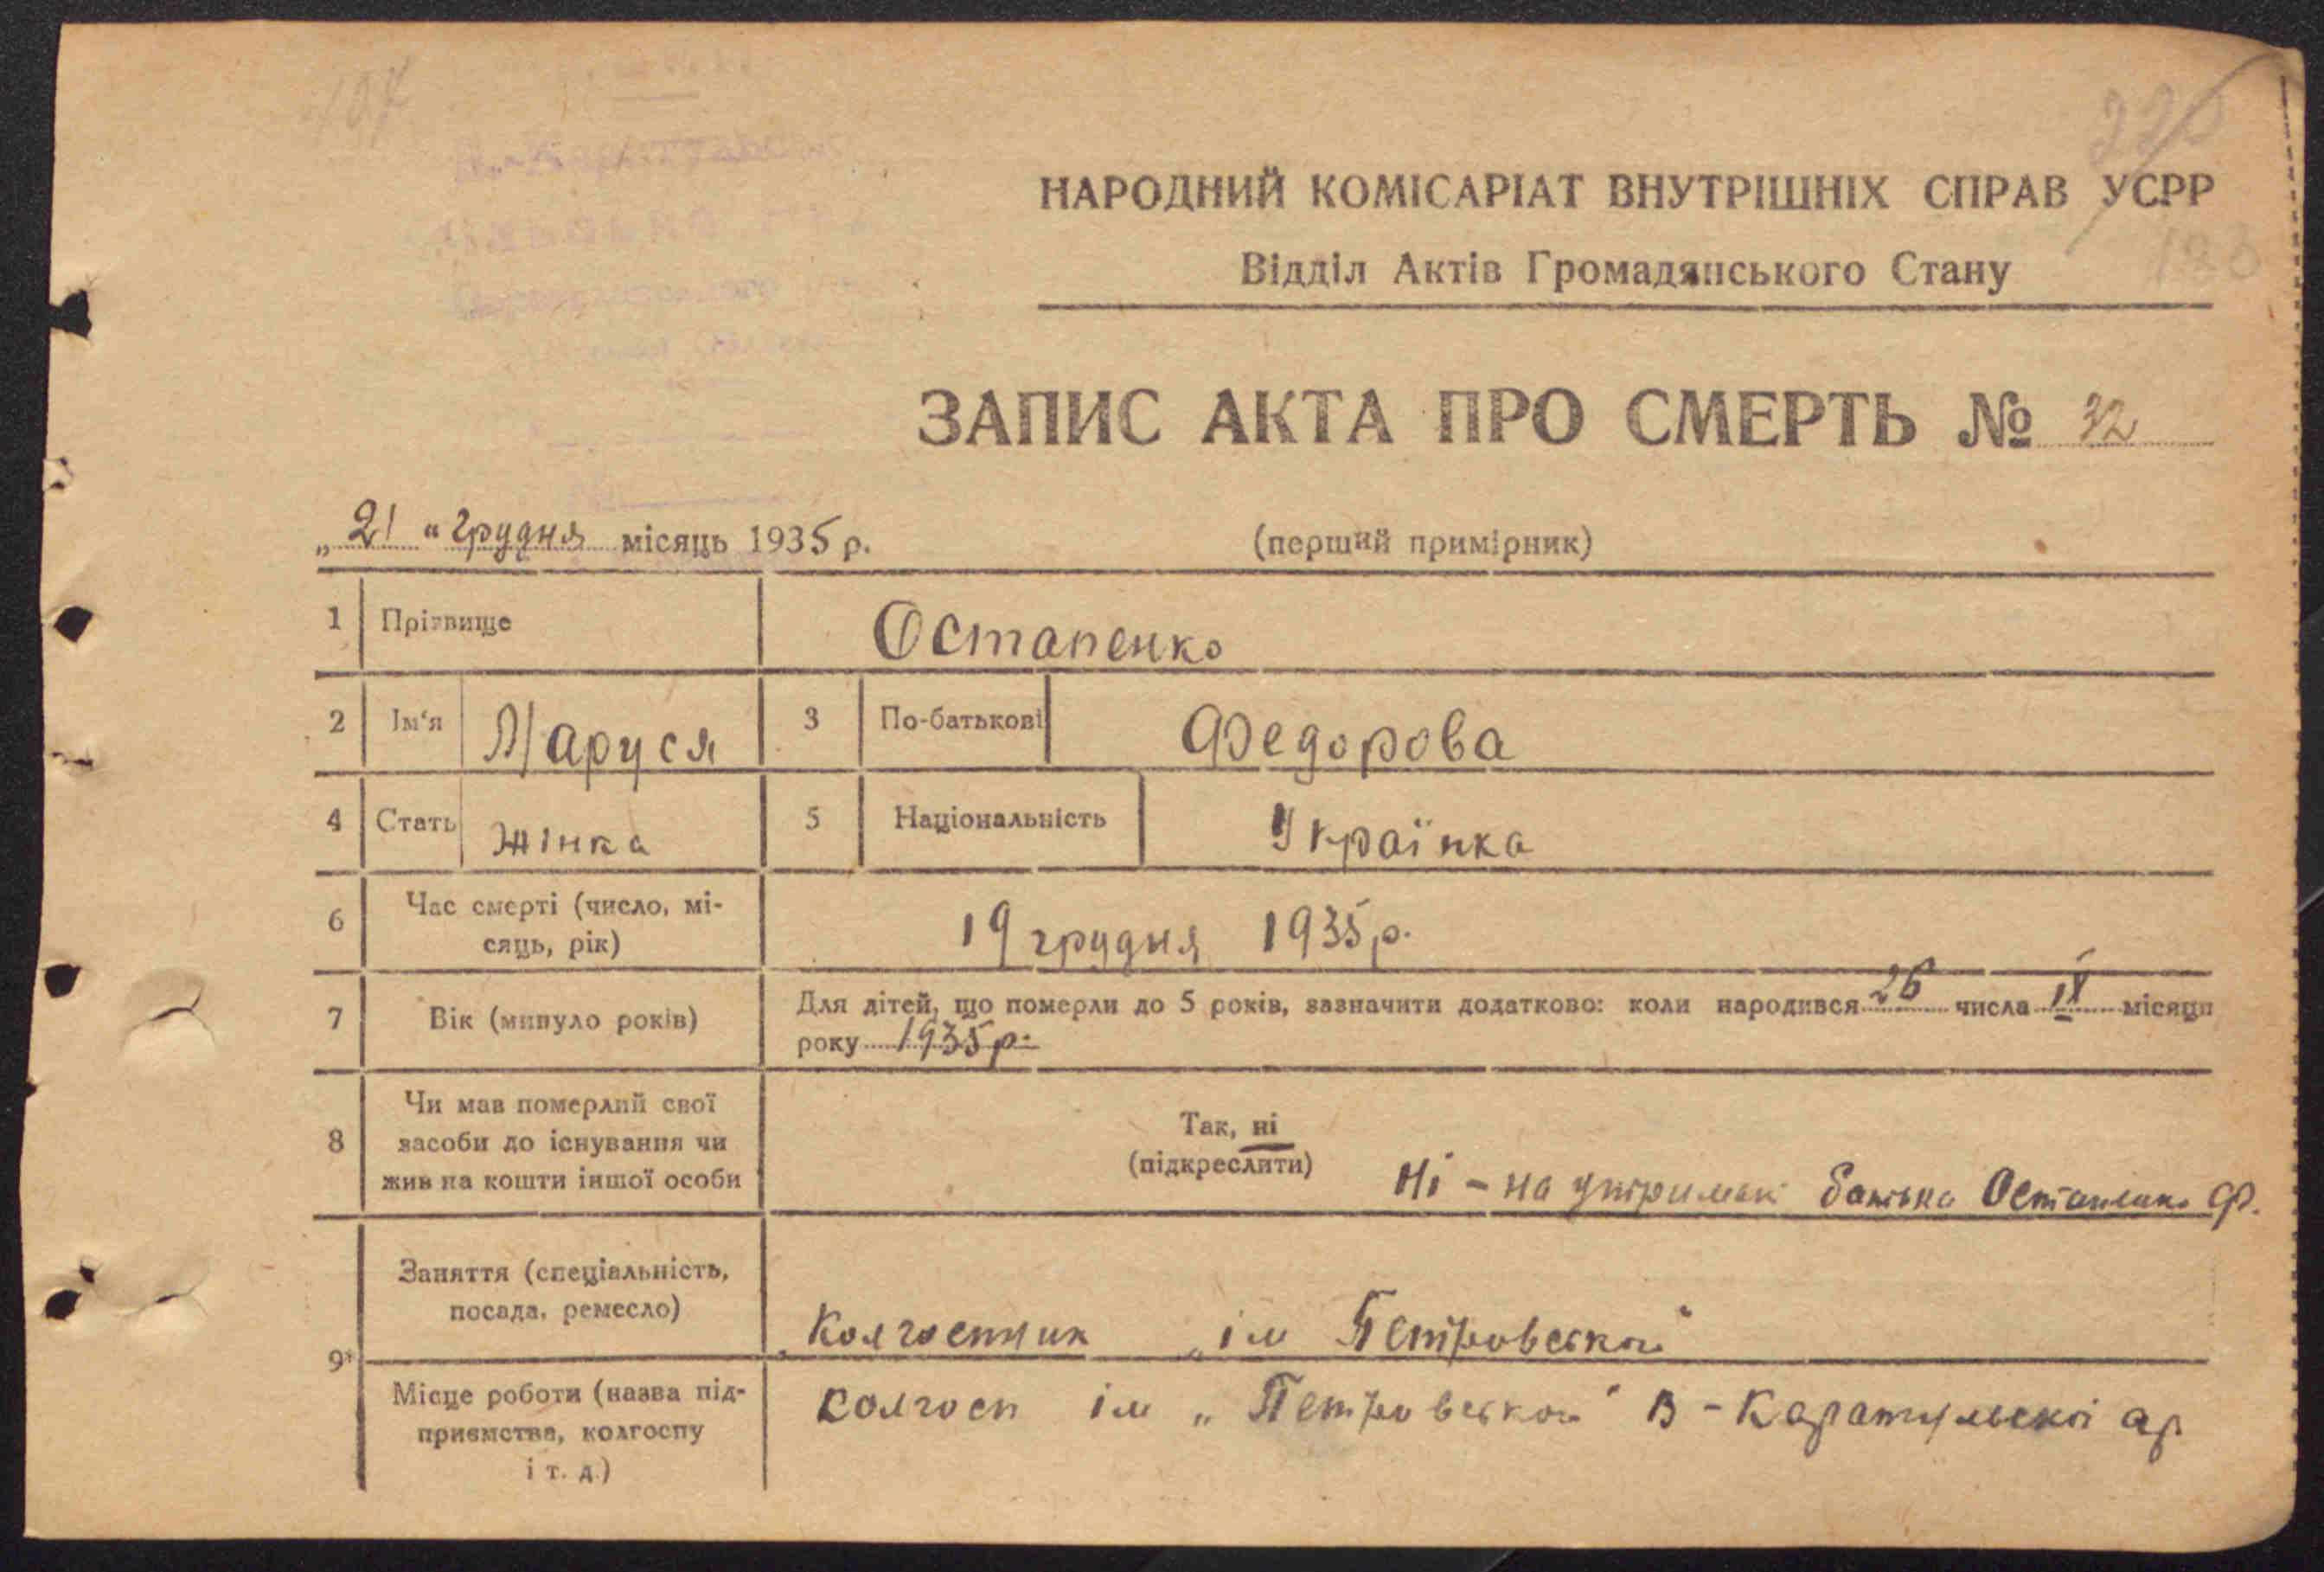 107
225
НАРОДНИЙ КОМІСАРІАТ ВНУТРІШНІХ СПРАВ УСРР
Відділ Актів Громадянського Стану
ЗАПИС АКТА ПРО СМЕРТЬ № 32
„21“ грудня місяць 1935 р.
(перший примірник)
1 Прізвище Остапенко
2 Ім‘я Маруся 3 По-батькові Федорова
4 Стать жінка 5 Національність Українка
6 Час смерті (число, мі-
сяць, рік) 19 грудня 1935 р.
7 Вік (минуло років) Для дітей, що померли до 5 років, зазначити додатково: коли народився 26 числа IX місяця
року 1935 р.
8 Чи мав померлий свої
засоби до існування чи
жив на кошти іншої особи
Так, ні
(підкреслити) Ні - на утриман батька Остапенко Ф.
9* Заняття (спеціальність,
посада, ремесло) Колгоспник „ім Петровської“
Місце роботи (назва під-
приємства, колгоспу
і т. д.)
колгосп ім „Петровської“ В-Каратульскої ар